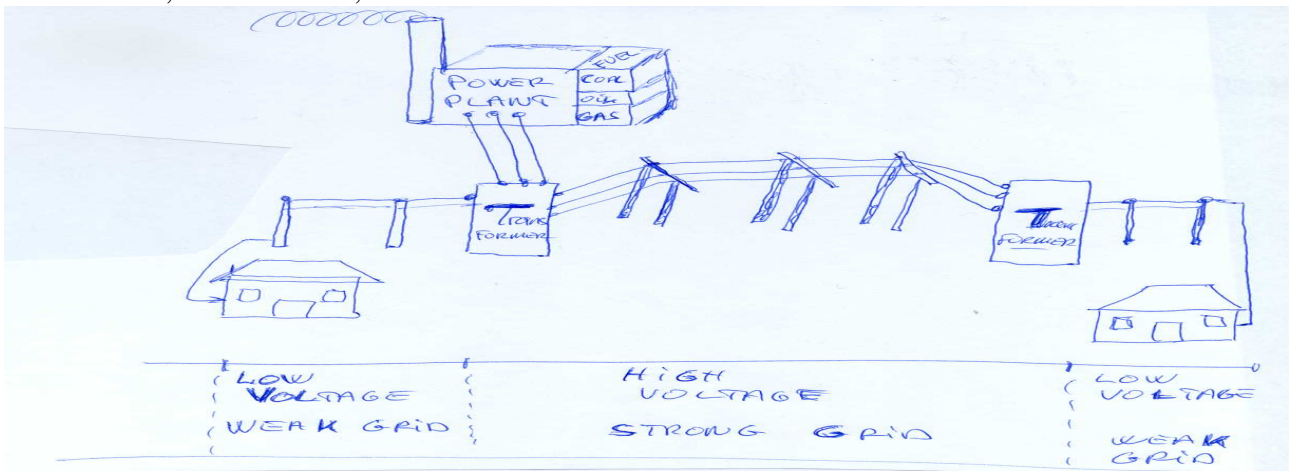 POWER
PLANT
FUEL
COAL
OIL
GAS
TRANS
FORMER
FORMER
LOW
VOLTAGE
WEAK GRID
HIGH
VOLTAGE
STRONG GRID
LOW
VOLTAGE
WEAK
GRID